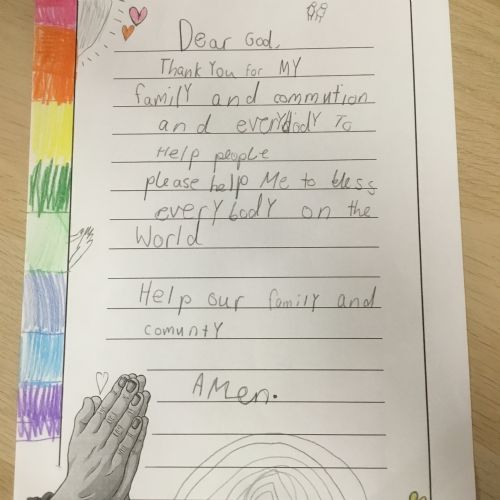 Dear God,
Thank You for MY
familY and commution
and everYbodY To
Help people
please help Me to bless
everYbodY on the
World
Help our familY and
comuntY
AMen.